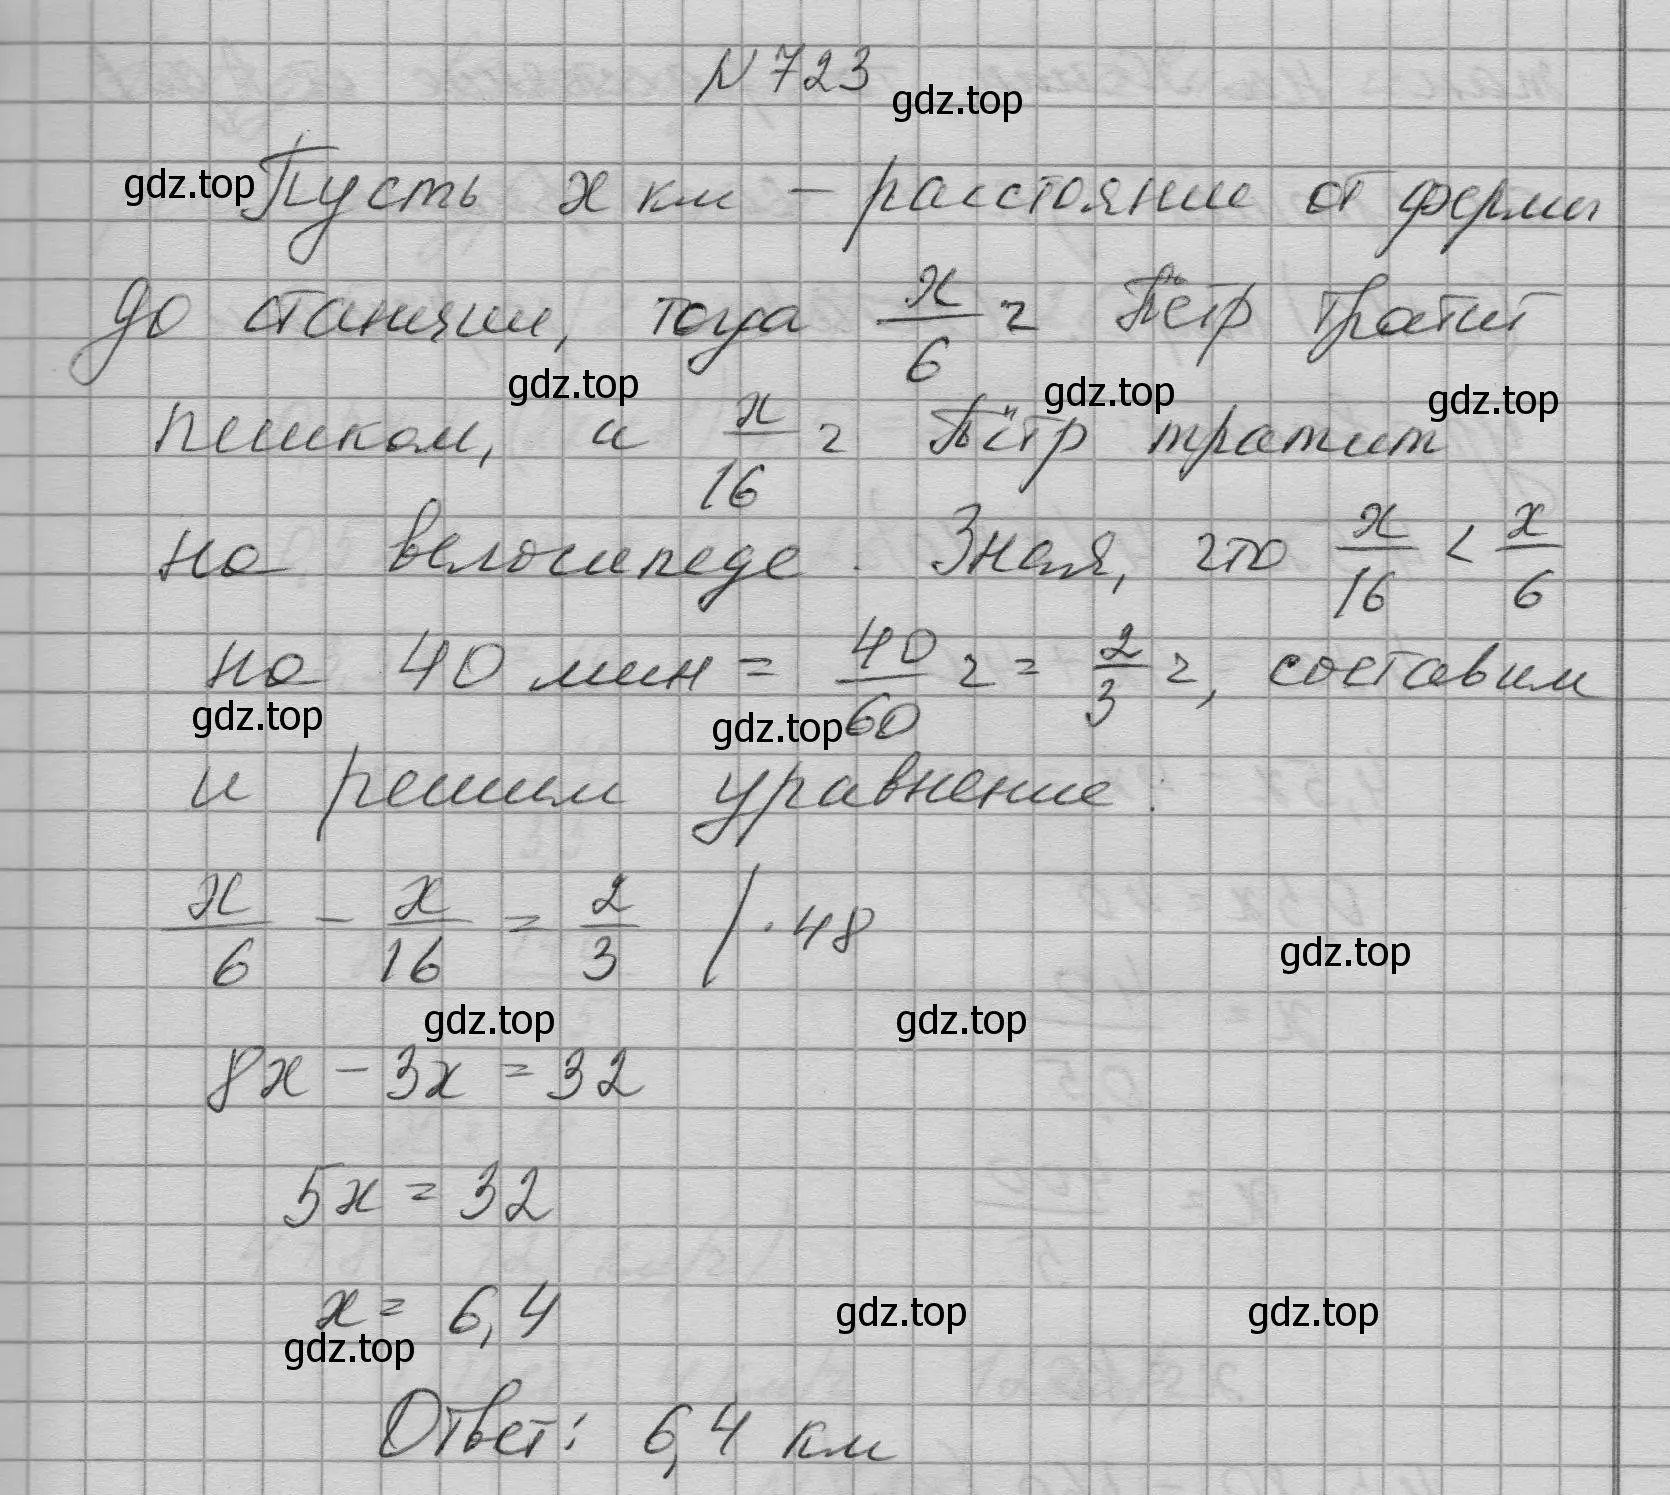 N 723
gdz.top
gdz.top
Пусть x км – расстояние от фермы
до станции, тогда x/6 ч Пётр тратит
gdz.top gdz.top gdz.top
пешком, и x/16 ч Пётр тратит
на велосипеде. Зная, что x/16 < x/6
на 40 мин = 40/60 ч = 2/3 ч, составим
gdz.top gdz.top
и решим уравнение:
x/6 – x/16 = 2/3 | · 48
gdz.top
gdz.top gdz.top
8x – 3x = 32
5x = 32
x = 6,4
gdz.top gdz.top
gdz.top
Ответ: 6,4 км